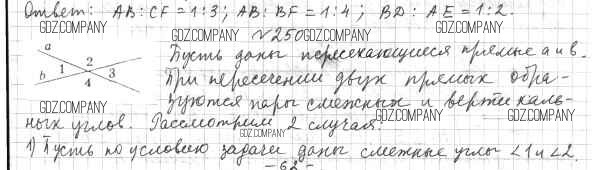 Ответ: AB:CF=1:3; AB:BF=1:4; BD:AE=1:2.
GDZ.COMPANY GDZ.COMPANY GDZ.COMPANY
№250 GDZ.COMPANY
a
b 1 2 3 4
Пусть даны пересекающиеся прямые a и b.
При пересечении двух прямых обра-
GDZ.COMPANY GDZ.COMPANY
зуются пары смежных и вертикаль-
GDZ.COMPANY GDZ.COMPANY
ных углов. Рассмотрим 2 случая:
GDZ.COMPANY
1) Пусть по условию задачи даны смежные углы <1 и <2.
-62-